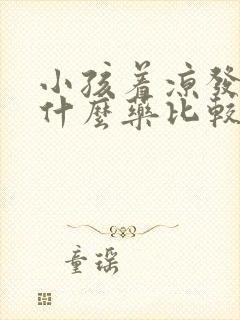 小孩着凉發
什麼藥比較
童瑶